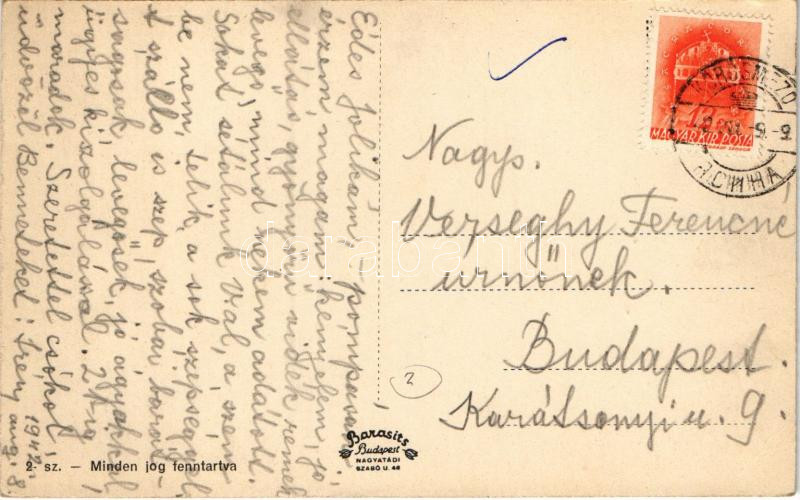 Édes Jolikám, pompásan
érzem magam; kényelem, jó
ellátás, gyönyörű vidék remek
levegő, mind nekem adatott.
Sokat sétálunk Val, a szem
be nem telik a sok szépséggel.
A szálló is szép, szobái baráts-
ságosak, levegősek, jó ágyakkal
ügyes kiszolgálással. 21-ig
maradok. Szeretettel csókol
üdvözöl Benneteket: Irén
1942. aug. 8.
Nagys.
Verseghy Ferencné
úrnőnek.
Budapest.
Karátsonyi u. 9.
MAGYAR KIR. POSTA
KŐRÖSMEZŐ
ЯСІННЯ
2
Barasits
Budapest
NAGYATÁDI
SZABÓ U. 46
2· sz. — Minden jog fenntartva
darabanth